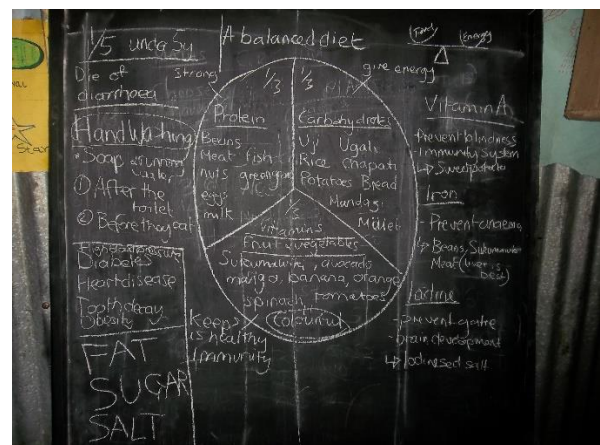 1/5 under 5y
Die of
diarrhoea
Hand Washing
Soap & running
water
① After the
toilet
② Before they eat
Diabetes
Heart disease
Tooth decay
Obesity
FAT
SUGAR
SALT
A balanced diet
strong
1/3
Protein
Beans
Meat fish
nuts greengrams
eggs
milk
1/3
give energy
Carbohydrates
Uji Ugali
Rice chapati
Potatoes Bread
Mandazi
Millet
1/3
Vitamins
Fruit & vegetables
Sukumawiki, avocado
mango, banana, orange
spinach, tomatoes
Colourful
Keeps
us healthy
Immunity
Food
Energy
Vitamin A
Prevent blindness
Immunity system
↳ Sweet potato
Iron
- Prevent anaemia
↳ Beans, Sukumawiki
Meat (liver is
best)
Iodine
- prevent goitre
- brain development
↳ Iodised salt